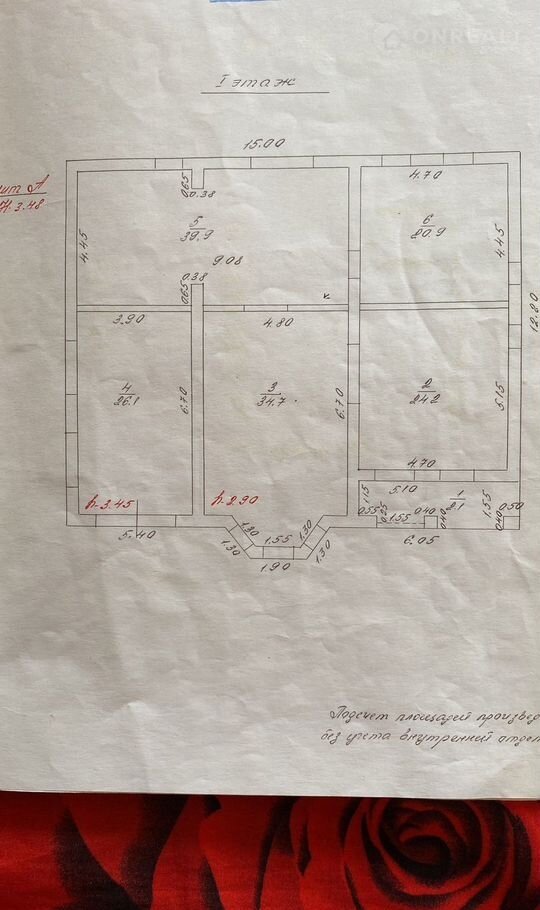 ONREALT
I этаж
15.00
Н.3.48
0.65
0.38
4.70
4.45
5
39.9
6
20.9
4.45
9.08
0.38
0.65
12.80
3.90
4.80
4
26.1
6.70
3
34.7
6.70
2
24.2
5.15
4.70
h-3.45
h-2.90
5.10
1
2.1
1.55
0.50
0.55
0.25
1.55
0.40
0.40
0.40
5.40
1.30
1.30
1.55
1.30
1.30
1.90
6.05
Подсчет площадей произвед
без учета внутренний отдел